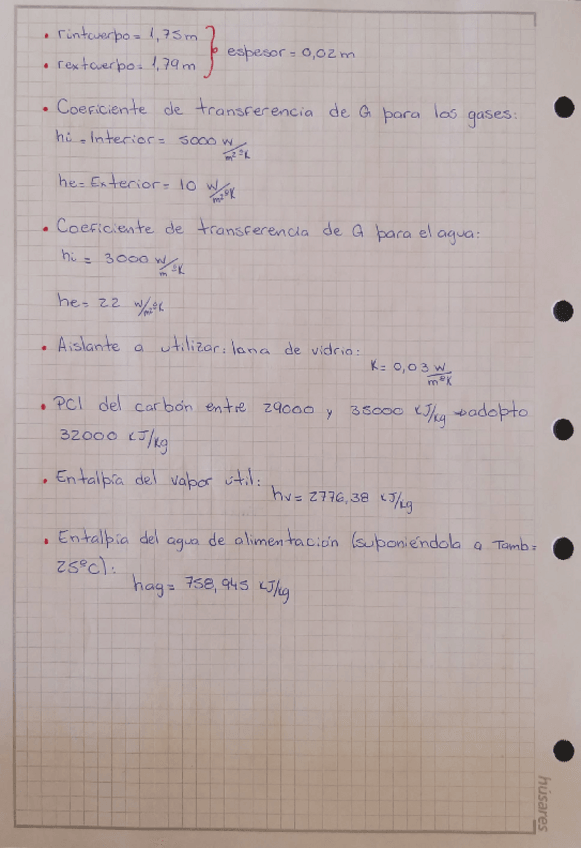 • rintcuerpo = 1,75m
espesor = 0,02m
• rextcuerpo = 1,79m
• Coeficiente de transferencia de G para los gases:
hi = Interior = 5000 W/m² °K
he = Exterior = 10 W/m² °K
• Coeficiente de transferencia de G para el agua:
hi = 3000 W/m °K
he = 22 W/m² °K
• Aislante a utilizar: lana de vidrio:
K = 0,03 W/m °K
• PCI del carbón entre 29000 y 35000 KJ/kg → adopto
32000 KJ/kg
• Entalpía del vapor útil:
hv = 2776,38 KJ/kg
• Entalpía del agua de alimentación (suponiéndola a Tamb =
25°C):
hag = 758,945 KJ/kg
húsares